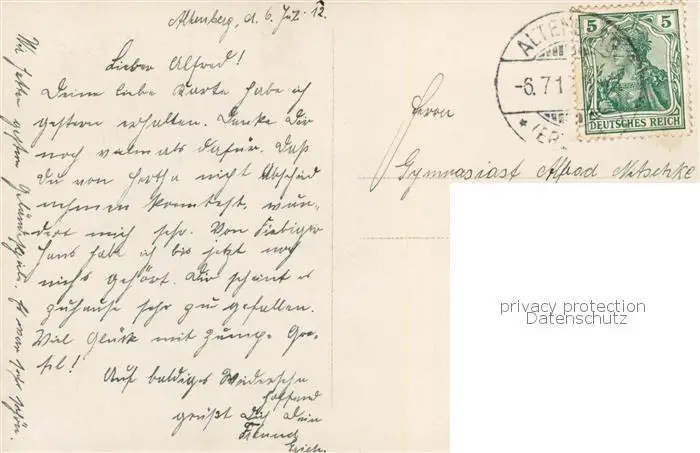 Altenberg, d. 6. Juli 12.
Lieber Alfred!
Deine liebe Karte habe ich
gestern erhalten. Danke Dir
noch vielmals dafür. Daß
Du von Hertha nicht Abschied
nehmen konntest, wun-
dert mich sehr. Von Fiebiger
Hans hab ich bis jetzt noch
nichts gehört. Dir scheint es
zuhause sehr zu gefallen.
Viel Glück mit
Auf baldiges Wiedersehn
hoffend
grüßt Dich Dein
Freund
Erich.
Wir hatten gestern Geländespiel. Es war sehr schön.
ALTENB
-6.7.1
* (ER
5 5
DEUTSCHES REICH
Herrn
Gymnasiast Alfred Nitschke
privacy protection
Datenschutz